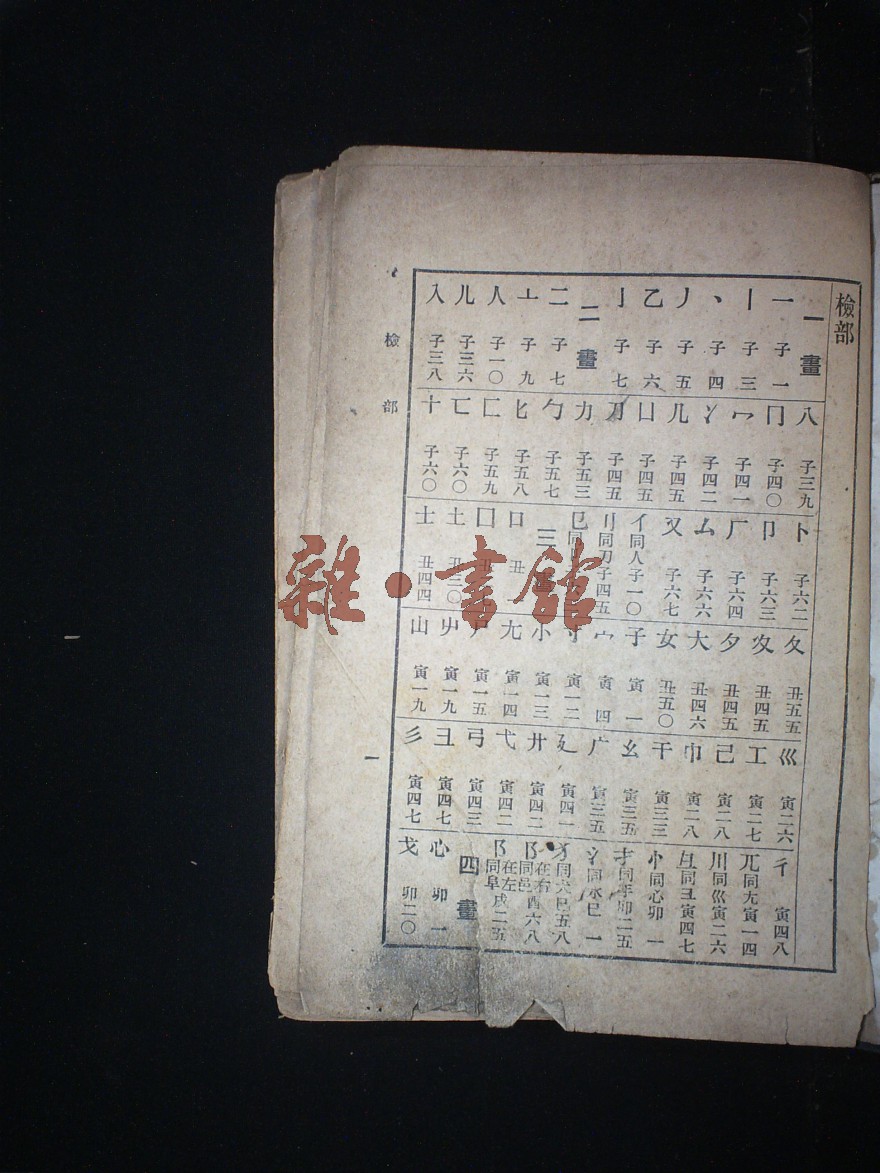 檢部
一畫
一 子一
丨 子三
丶 子四
丿 子五
乙 子六
亅 子七
二畫
二 子七
亠 子九
人 子一〇
儿 子三六
入 子三八
八 子三九
冂 子四〇
冖 子四一
冫 子四二
几 子四五
凵 子四五
刀 子四五
力 子五三
勹 子五七
匕 子五八
匚 子五九
匸 子六〇
十 子六〇
卜 子六二
卩 子六三
厂 子六四
厶 子六六
又 子六七
亻同人子一〇
刂同刀子四五
㔾同
三
口 丑一
囗 丑
土 丑三〇
士 丑四四
夂 丑四五
夊 丑四五
夕 丑四五
大 丑四六
女 丑五〇
子 寅一
宀 寅四
寸 寅一二
小 寅一三
尢 寅一四
尸 寅一五
屮 寅一九
山 寅一九
巛 寅二六
工 寅二七
己 寅二八
巾 寅二八
干 寅三三
幺 寅三五
广 寅三五
廴 寅四一
廾 寅四二
弋 寅四二
弓 寅四三
彐 寅四七
彡 寅四七
彳 寅四八
兀同尢寅一四
川同巛寅二六
彑同彐寅四七
忄同心卯一
扌同手卯二五
氵同水巳一
犭同犬巳五八
阝在右同邑酉六八
阝在左同阜戌二五
四畫
心 卯一
戈 卯二〇
檢部
一
雜·書館